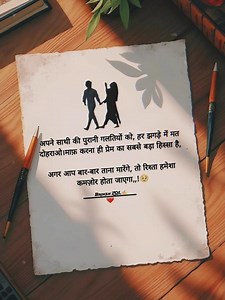 अपने साथी की पुरानी गलतियों को, हर झगड़े में मत
दोहराओ।माफ़ करना ही प्रेम का सबसे बड़ा हिस्सा है,
अगर आप बार-बार ताना मारेंगे, तो रिश्ता हमेशा
कमज़ोर होता जाएगा,,!🥺